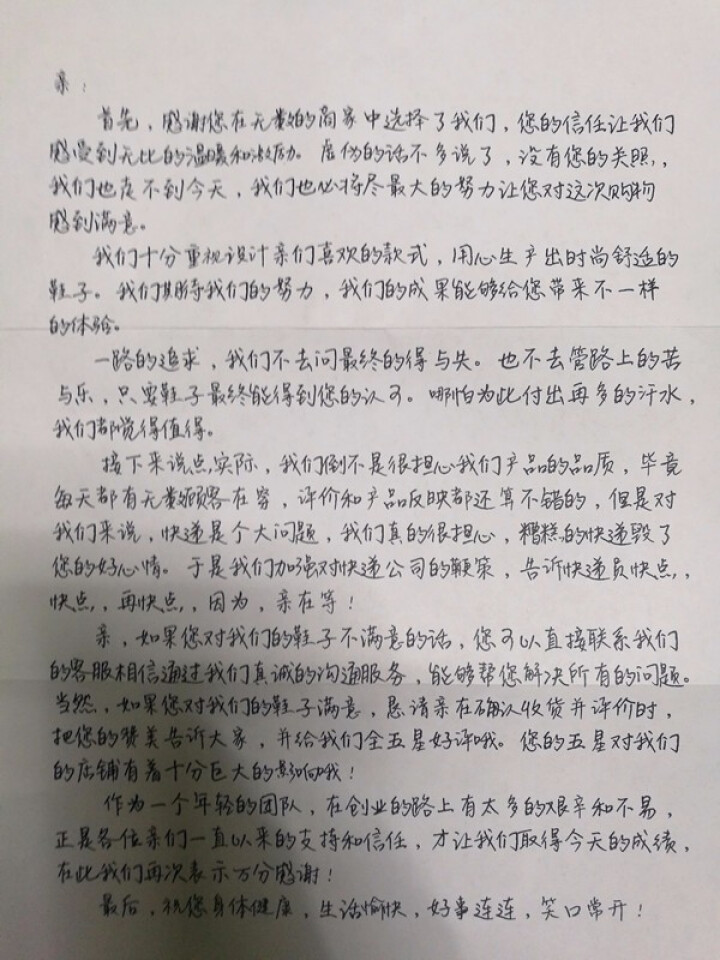 亲：
首先，感谢您在无数的商家中选择了我们，您的信任让我们
感受到无比的温暖和激励。虚伪的话不多说了，没有您的关照，
我们也走不到今天，我们也必将尽最大的努力让您对这次购物
感到满意。
我们十分重视设计亲们喜欢的款式，用心生产出时尚舒适的
鞋子。我们期待我们的努力，我们的成果能够给您带来不一样
的体验。
一路的追求，我们不去问最终的得与失。也不去管路上的苦
与乐，只要鞋子最终能得到您的认可。哪怕为此付出再多的汗水，
我们都觉得值得。
接下来说点实际，我们倒不是很担心我们产品的品质，毕竟
每天都有无数顾客在穿，评价和产品反映都还算不错的，但是对
我们来说，快递是个大问题，我们真的很担心，糟糕的快递毁了
您的好心情。于是我们加强对快递公司的鞭策，告诉快递员快点，
快点，再快点，因为，亲在等！
亲，如果您对我们的鞋子不满意的话，您可以直接联系我们
的客服相信通过我们真诚的沟通服务，能够帮您解决所有的问题。
当然，如果您对我们的鞋子满意，恳请亲在确认收货并评价时，
把您的赞美告诉大家，并给我们全五星好评哦。您的五星对我们
的店铺有着十分巨大的影响哦！
作为一个年轻的团队，在创业的路上有太多的艰辛和不易，
正是各位亲们一直以来的支持和信任，才让我们取得今天的成绩，
在此我们再次表示万分感谢！
最后，祝您身体健康，生活愉快，好事连连，笑口常开！